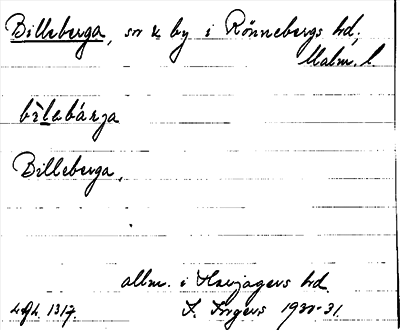 Billeberga, sn & by i Rönnebergs hd,
Malm. l.
bìlabárja
Billeberga,
allm. i Harjagers hd
I. Ingers 1930-31.